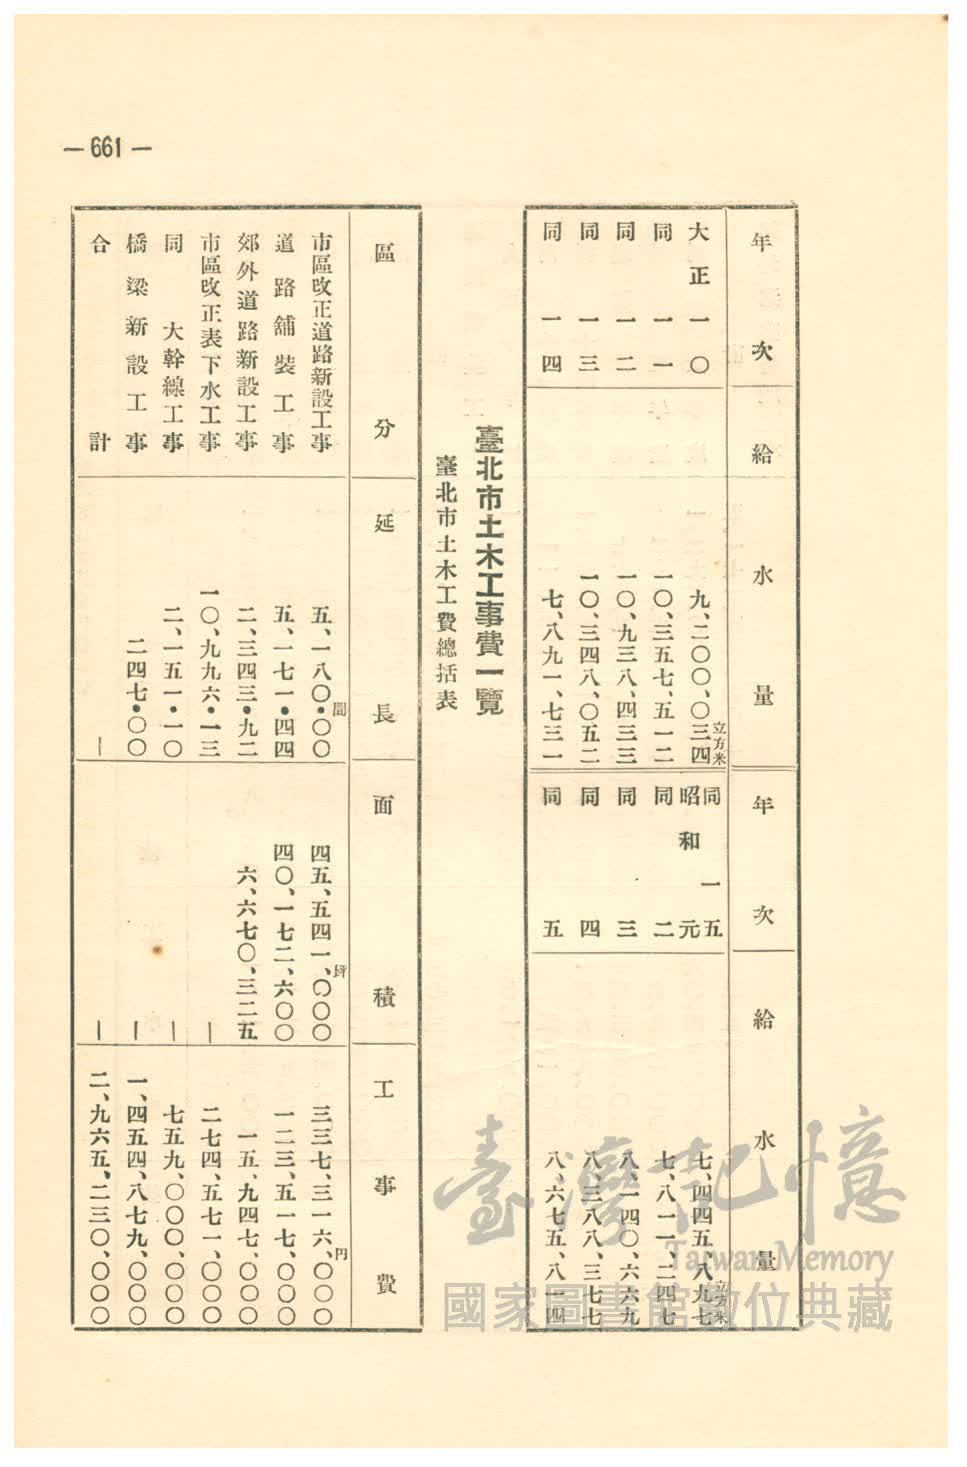 — 661 —
年次 給水量 年次 給水量
大正一〇 九、二〇〇、〇三四立方米 同一五 昭和元 七、四四五、八九七立方米
同一一 一〇、三五七、五一二 同二 七、八一一、二四七
同一二 一〇、九三八、四三三 同三 八、一四〇、六六九
同一三 一〇、三四八、〇五二 同四 八、三八八、三七七
同一四 七、八九一、七三一 同五 八、六七五、八一四
臺北市土木工事費一覽
臺北市土木工費總括表
區分 延長 面積 工事費
市區改正道路新設工事 五、一八〇•〇〇間 四五、五四一、〇〇〇坪 三三七、三一六、〇〇〇円
道路舖裝工事 五、一七一•四四 四〇、一七二、六〇〇 一二三、五一七、〇〇〇
郊外道路新設工事 二、三四三•九二 六、六七〇、三二五 一五、九四七、〇〇〇
市區改正表下水工事 一〇、九九六•一三 — 二七四、五七一、〇〇〇
同 大幹線工事 二、一五一•一〇 — 七五九、〇〇〇、〇〇〇
橋梁新設工事 二四七•〇〇 — 一、四五四、八七九、〇〇〇
合計 — — 二、九六五、二三〇、〇〇〇
臺灣記憶
Taiwan Memory
國家圖書館數位典藏